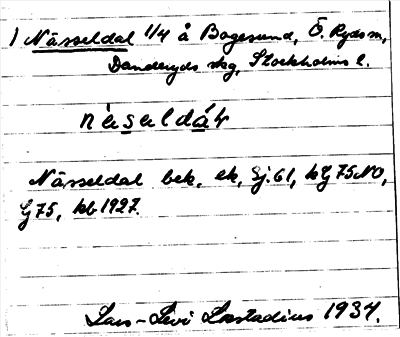 1) Nässeldal 1/4 å Bogesund, Ö. Ryds sn,
Danderyds skg, Stockholms l.
Nässeldal bek. ek, Sj. 61, hä 75 NO,
G 75, kb 1927.
Lars-Levi Læstadius 1934.